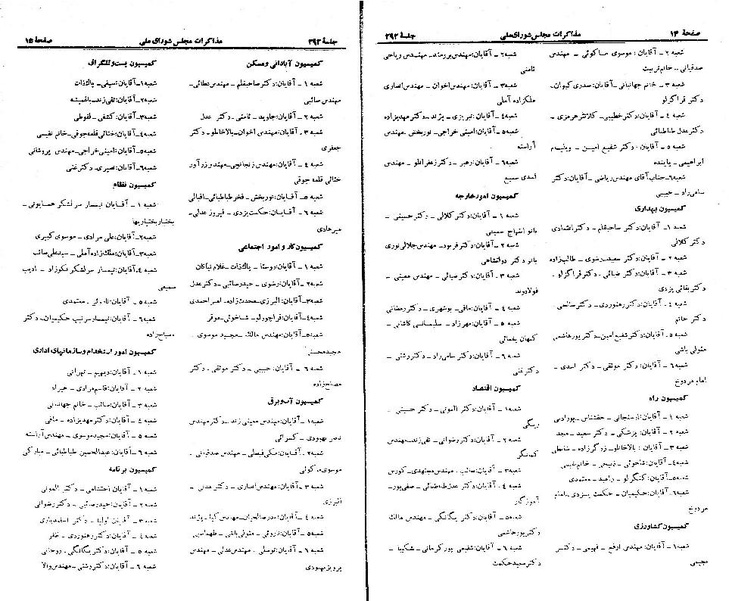 صفحهٔ ۱۴ مذاکرات مجلس شورای ملی جلسهٔ ۲۹۳
شعبه ۲ ـ آقایان: موسوی ماکوئی ـ مهندس
صدقیانی ـ خانم تربیت
شعبه ۳ ـ خانم جهانبانی ـ آقایان: صدری کیوان ـ
دکتر قراگزلو
شعبه ۴ ـ آقایان: دکتر خطیبی ـ کلانتر هرمزی ـ
دکتر عدل طباطبائی
شعبه ۵ ـ آقایان: دکتر شفیع امین ـ
ابراهیمی ـ پاینده
شعبه ۶ ـ جناب آقای مهندس ریاضی ـ آقایان: دکتر
سامی راد ـ حبیبی
کمیسیون بهداری
شعبه ۱ ـ آقایان: دکتر صاحبقلم ـ دکتر اعتمادی
دکتر کلالی
شعبه ۲ ـ آقایان: دکتر سعید ـ رضوی ـ طالب‌زاده
شعبه ۳ ـ آقایان: دکتر ضیائی ـ دکتر قراگزلو ـ
دکتر بقائی یزدی
شعبه ۴ ـ آقایان: دکتر رهنوردی ـ دکتر صالحی
دکتر خاتم
شعبه ۵ ـ آقایان: دکتر شفیع امین ـ دکتر پورهاشمی
متولی باشی
شعبه ۶ ـ آقایان: دکتر موثقی ـ دکتر اسدی ـ
امام مردوخ
کمیسیون راه
شعبه ۱ ـ آقایان: ارسنجانی ـ حقشناس ـ پوردادبی
شعبه ۲ ـ آقایان: پزشکی ـ دکتر سعید ـ مجد
شعبه ۳ ـ آقایان: بالاخانلو ـ زرگرزاده ـ
شعبه ۴ ـ آقایان: شاخوئی ـ
شعبه ۵ ـ آقایان: کنگرلو ـ رامبد ـ معتمدی
شعبه ۶ ـ آقایان: حکیمیان ـ حکمت یزدی ـ امام
مردوخ
کمیسیون کشاورزی
شعبه ۱ ـ آقایان: مهندس ارفع ـ فهیمی ـ دکتر
شعبه ۲ ـ آقایان: مهندس برومند ـ مهندس ریاحی
ثامنی
شعبه ۳ ـ آقایان: مهندس اخوان ـ مهندس انصاری
ملک‌زاده آملی
شعبه ۴ ـ آقایان: تبریزی ـ پژند ـ دکتر مهدیزاده
شعبه ۵ ـ آقایان: امینی خراجی ـ نوربخش ـ مهندس
آراسته
شعبه ۶ ـ آقایان: رهبر ـ دکتر زعفرانلو ـ مهندس
اسدی سمیع
کمیسیون امور خارجه
شعبه ۱ ـ آقایان: دکتر کلالی ـ دکتر حسینی ـ
بانو ابتهاج سمیعی
شعبه ۲ ـ آقایان: دکتر فربود ـ مهندس جلالی نوری
بانو دکتر دولتشاهی
شعبه ۳ ـ آقایان: دکتر ضیائی ـ مهندس معینی ـ
فولادوند
شعبه ۴ ـ آقایان: مافی ـ بوشهری ـ دکتر رمضانی
شعبه ۵ ـ آقایان: مهرزاد ـ سلیمانی کاشانی ـ
کیهان یغمائی
شعبه ۶ ـ آقایان: دکتر سامی راد ـ دکتر وشنی ـ
دکتر غنی
کمیسیون اقتصاد
شعبه ۱ ـ آقایان: دکتر الموتی ـ دکتر حسینی ـ
ریگی
شعبه ۲ ـ آقایان: دکتر رضوانی ـ تقی زند ـ مهندس
کمانگر
شعبه ۳ ـ آقایان: صائب ـ مهندس مجتهدی ـ کورس
شعبه ۴ ـ آقایان: دکتر عدل طباطبائی ـ صفی‌پور ـ
آموزگار
شعبه ۵ ـ آقایان: دکتر بیگانگی ـ مهندس مالک
دکتر پورهاشمی
شعبه ۶ ـ آقایان: شفیعی پورکرمانی ـ شکیبا ـ
دکتر سعید حکمت
جلسهٔ ۲۹۳ مذاکرات مجلس شورای ملی صفحهٔ ۱۵
کمیسیون آبادانی و مسکن
شعبه ۱ ـ آقایان: دکتر صاحبقلم ـ مهندس عطائی ـ
مهندس صائبی
شعبه ۲ ـ آقایان: جاوید ـ ثامنی ـ دکتر عدل
شعبه ۳ ـ آقایان: مهندس اخوان ـ بالاخانلو ـ دکتر
جعفری
شعبه ۴ ـ آقایان: مهندس زنجانچی ـ مهندس زرآور
ختائی قلعه جوقی
شعبه ۵ ـ آقایان: نوربخش ـ فخر طباطبائی ـ اقبالی
شعبه ۶ ـ آقایان: حکمت یزدی ـ فیروز عدلی ـ
میرهادی
کمیسیون کار و امور اجتماعی
شعبه ۱ ـ آقایان: روستا ـ پاک‌ذات ـ غلام نیاکان
شعبه ۲ ـ آقایان: رضوی ـ حیدر صائبی ـ دکتر عدل
شعبه ۳ ـ آقایان: البرزی ـ محدث‌زاده ـ امیراحمدی
شعبه ۴ ـ آقایان: قراچورلو ـ شاخوئی ـ موقر
شعبه ۵ ـ آقایان: مهندس مالک ـ مجید موسوی ـ
مجید محسنی
شعبه ۶ ـ آقایان: حبیبی ـ دکتر موثقی ـ دکتر
مصباح‌زاده
کمیسیون آب و برق
شعبه ۱ ـ آقایان: مهندس معینی زند ـ دکتر مهندس
بهبودی ـ کسرائی
شعبه ۲ ـ آقایان: ـ مهندس صدقیانی ـ
موسوی ماکوئی
شعبه ۳ ـ آقایان: مهندس انصاری ـ دکتر مدنی ـ
شعبه ۴ ـ آقایان: ـ مهندس کیا ـ پژند
شعبه ۵ ـ آقایان: درودی ـ متولی باشی ـ طهماسبی
شعبه ۶ ـ آقایان: توسلی ـ مهندس عدلی ـ مهندس
پرویز بهبودی
کمیسیون پست و تلگراف
شعبه ۱ ـ آقایان: سیفی ـ پاک‌ذات
شعبه ۲ ـ آقایان: تقی زند ـ
شعبه ۳ ـ آقایان: کشفی ـ قنوطی
شعبه ۴ ـ آقایان: ختائی قلعه جوقی ـ خانم نفیسی
شعبه ۵ ـ آقایان: امینی خراجی ـ مهندس پروشانی
شعبه ۶ ـ آقایان: نصیری ـ دکتر غنی
کمیسیون نظام
شعبه ۱ ـ آقایان: تیمسار سرلشکر همایونی ـ
بختیار بختیاریها
شعبه ۲ ـ آقایان: علی مرادی ـ موسوی کبیری
شعبه ۳ ـ آقایان: ملک‌زاده آملی ـ سید علی صائب
شعبه ۴ ـ آقایان: تیمسار سرلشکر نکوزاد ـ ادیب
سمیعی
شعبه ۵ ـ آقایان: ـ معتمدی
شعبه ۶ ـ آقایان: تیمسار سرتیپ حکیمیان ـ دکتر
مصباح‌زاده
کمیسیون امور استخدام و سازمانهای اداری
شعبه ۱ ـ آقایان: دیهیم ـ تهرانی
شعبه ۲ ـ آقایان: قاسم مرادی ـ
شعبه ۳ ـ آقایان: صائب ـ خانم جهانبانی
شعبه ۴ ـ آقایان: دکتر مهدیزاده ـ مافی
شعبه ۵ ـ آقایان: مجید موسوی ـ مهندس آراسته
شعبه ۶ ـ آقایان: عبدالحسین طباطبائی ـ مبارکی
کمیسیون برنامه
شعبه ۱ ـ آقایان: احتشامی ـ دکتر الموتی
شعبه ۲ ـ آقایان: حیدر صائبی ـ دکتر رضوانی
شعبه ۳ ـ ـ دکتر اسفندیاری
شعبه ۴ ـ آقایان: دکتر رهنوردی ـ
شعبه ۵ ـ آقایان: دکتر بیگانگی ـ روحانی
شعبه ۶ ـ آقایان: دکتر وشنی ـ مهندس والا